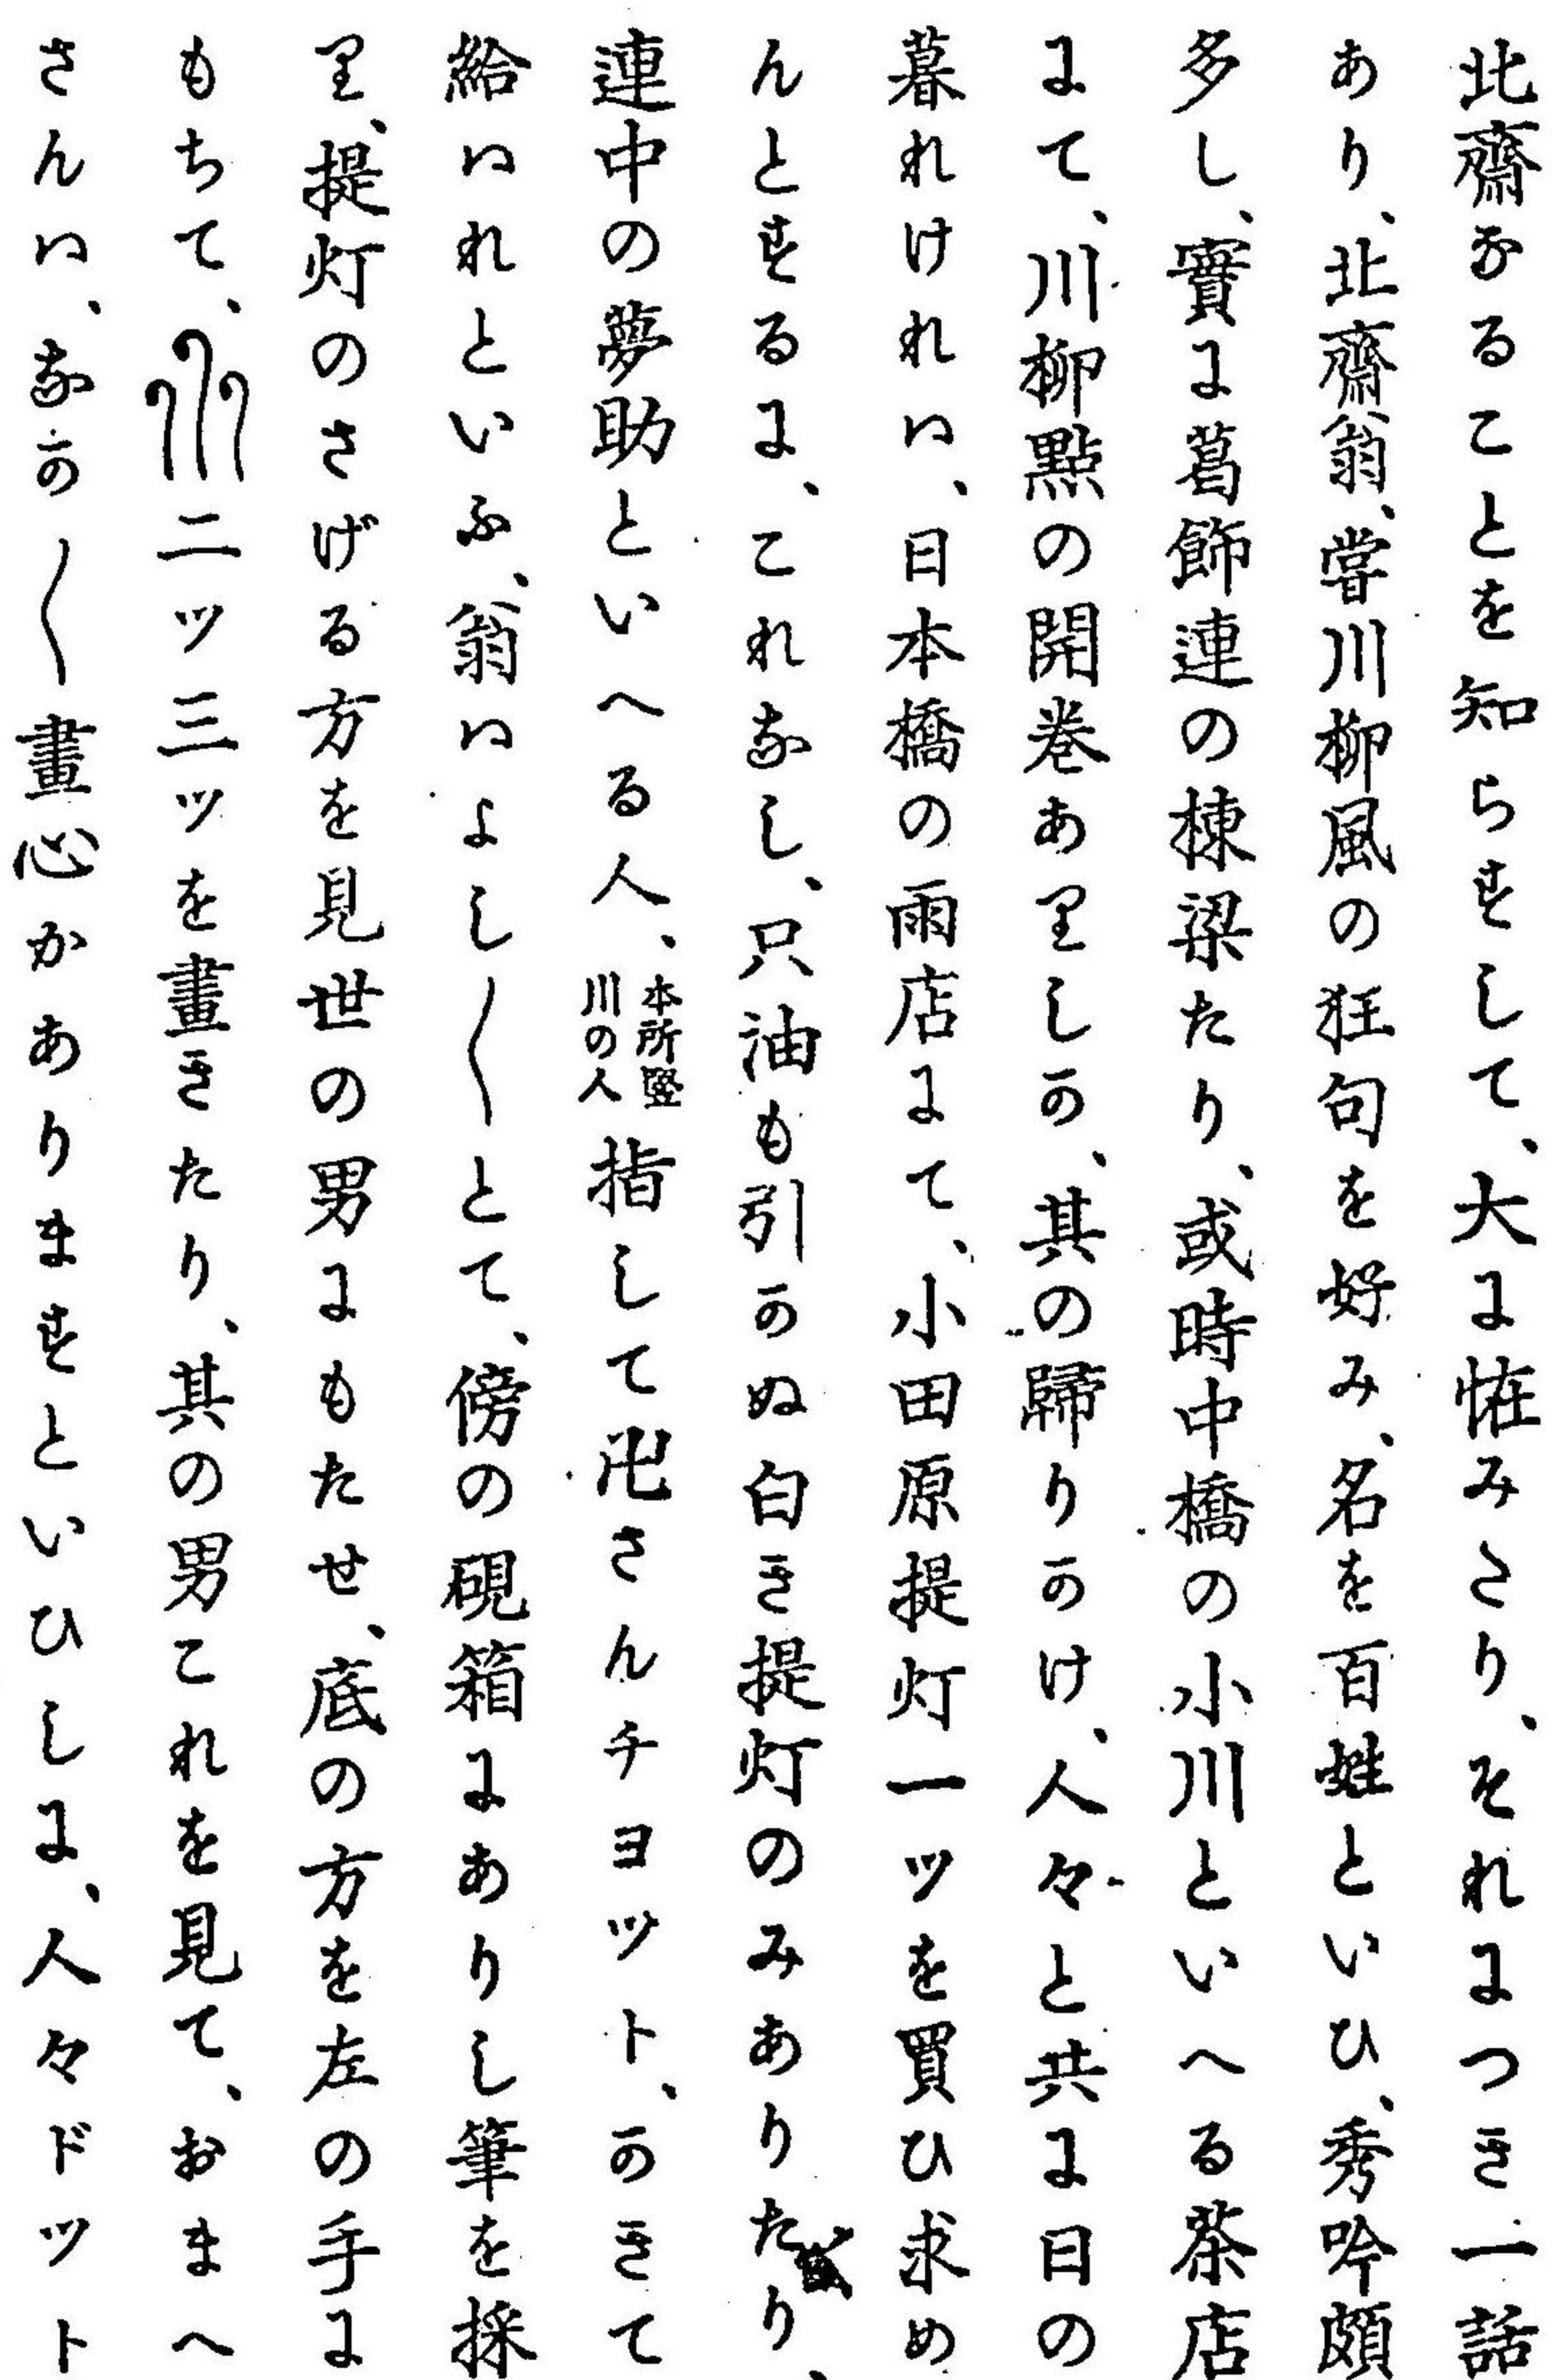 北齋なることを知らずして、大に恠みたり、それにつき一話
あり、北齋翁、嘗川柳風の狂句を好み、名を百姓といひ、秀吟頗
多し、實に葛飾連の棟梁たり、或時中橋の小川といへる茶店
にて、川柳點の開巻ありしか、其の歸りかけ、人々と共に日の
暮れけれハ、日本橋の雨店にて、小田原提灯一ツを買ひ求め
んとするに、これなし、只油も引かぬ白き提灯のみありたり、
連中の夢助といへる人、本所竪川の人指して卍さんチヨツト、かきて
給ハれといふ、翁ハよし〱とて、傍の硯箱にありし筆を採
り、提灯のさげる方を見世の男にもたせ、底の方を左の手に
もちて、二ツ三ツを畫きたり、其の男これを見て、おまへ
さんハ、なか〱畫心かありますといひしに、人々ドツト